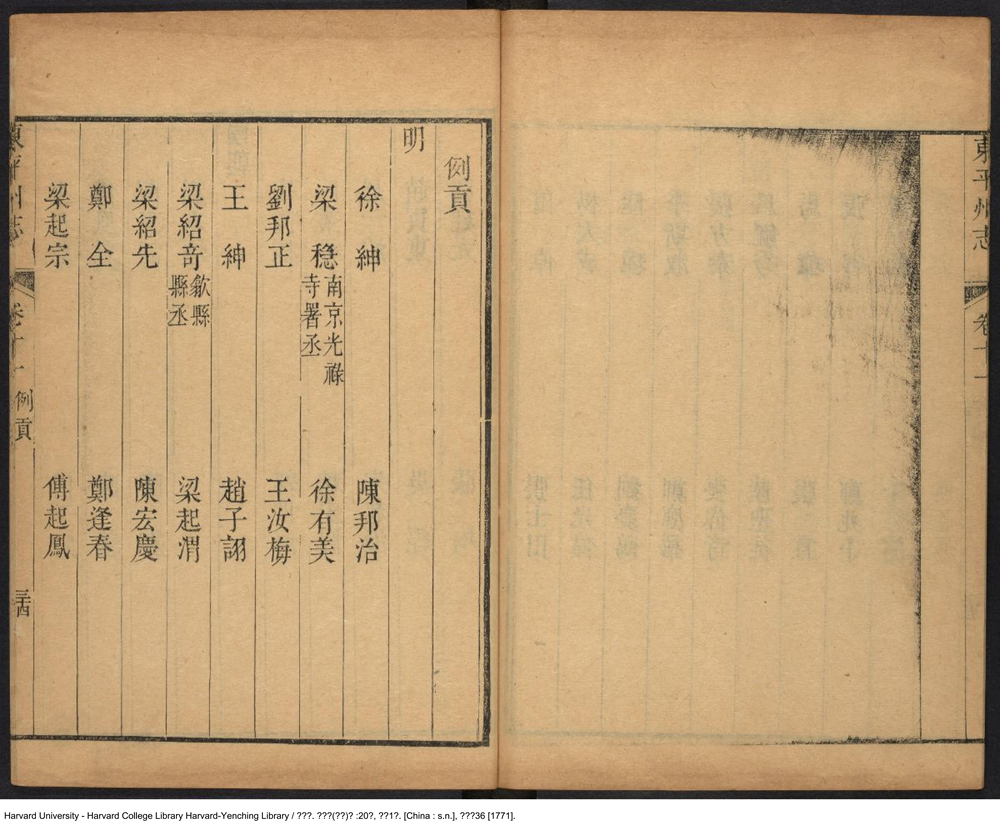 東平州志
卷十一
例貢
明
徐紳 陳邦治
梁穩 南京光祿寺署丞 徐有美
劉邦正 王汝梅
王紳 趙子詡
梁紹竒 歙縣縣丞 梁起渭
梁紹先 陳宏慶
鄭全 鄭逢春
梁起宗 傅起鳳
東平州志 卷十一 例貢 三十四
Harvard University - Harvard College Library Harvard-Yenching Library / ???. ???(??)? :20?, ??1?. [China : s.n.], ???36 [1771].